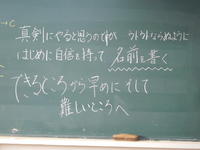 真剣にやると思うのですが ウトウトならぬように
はじめに自信を持って 名前を書く
できるところから早めに そして
難しいところへ